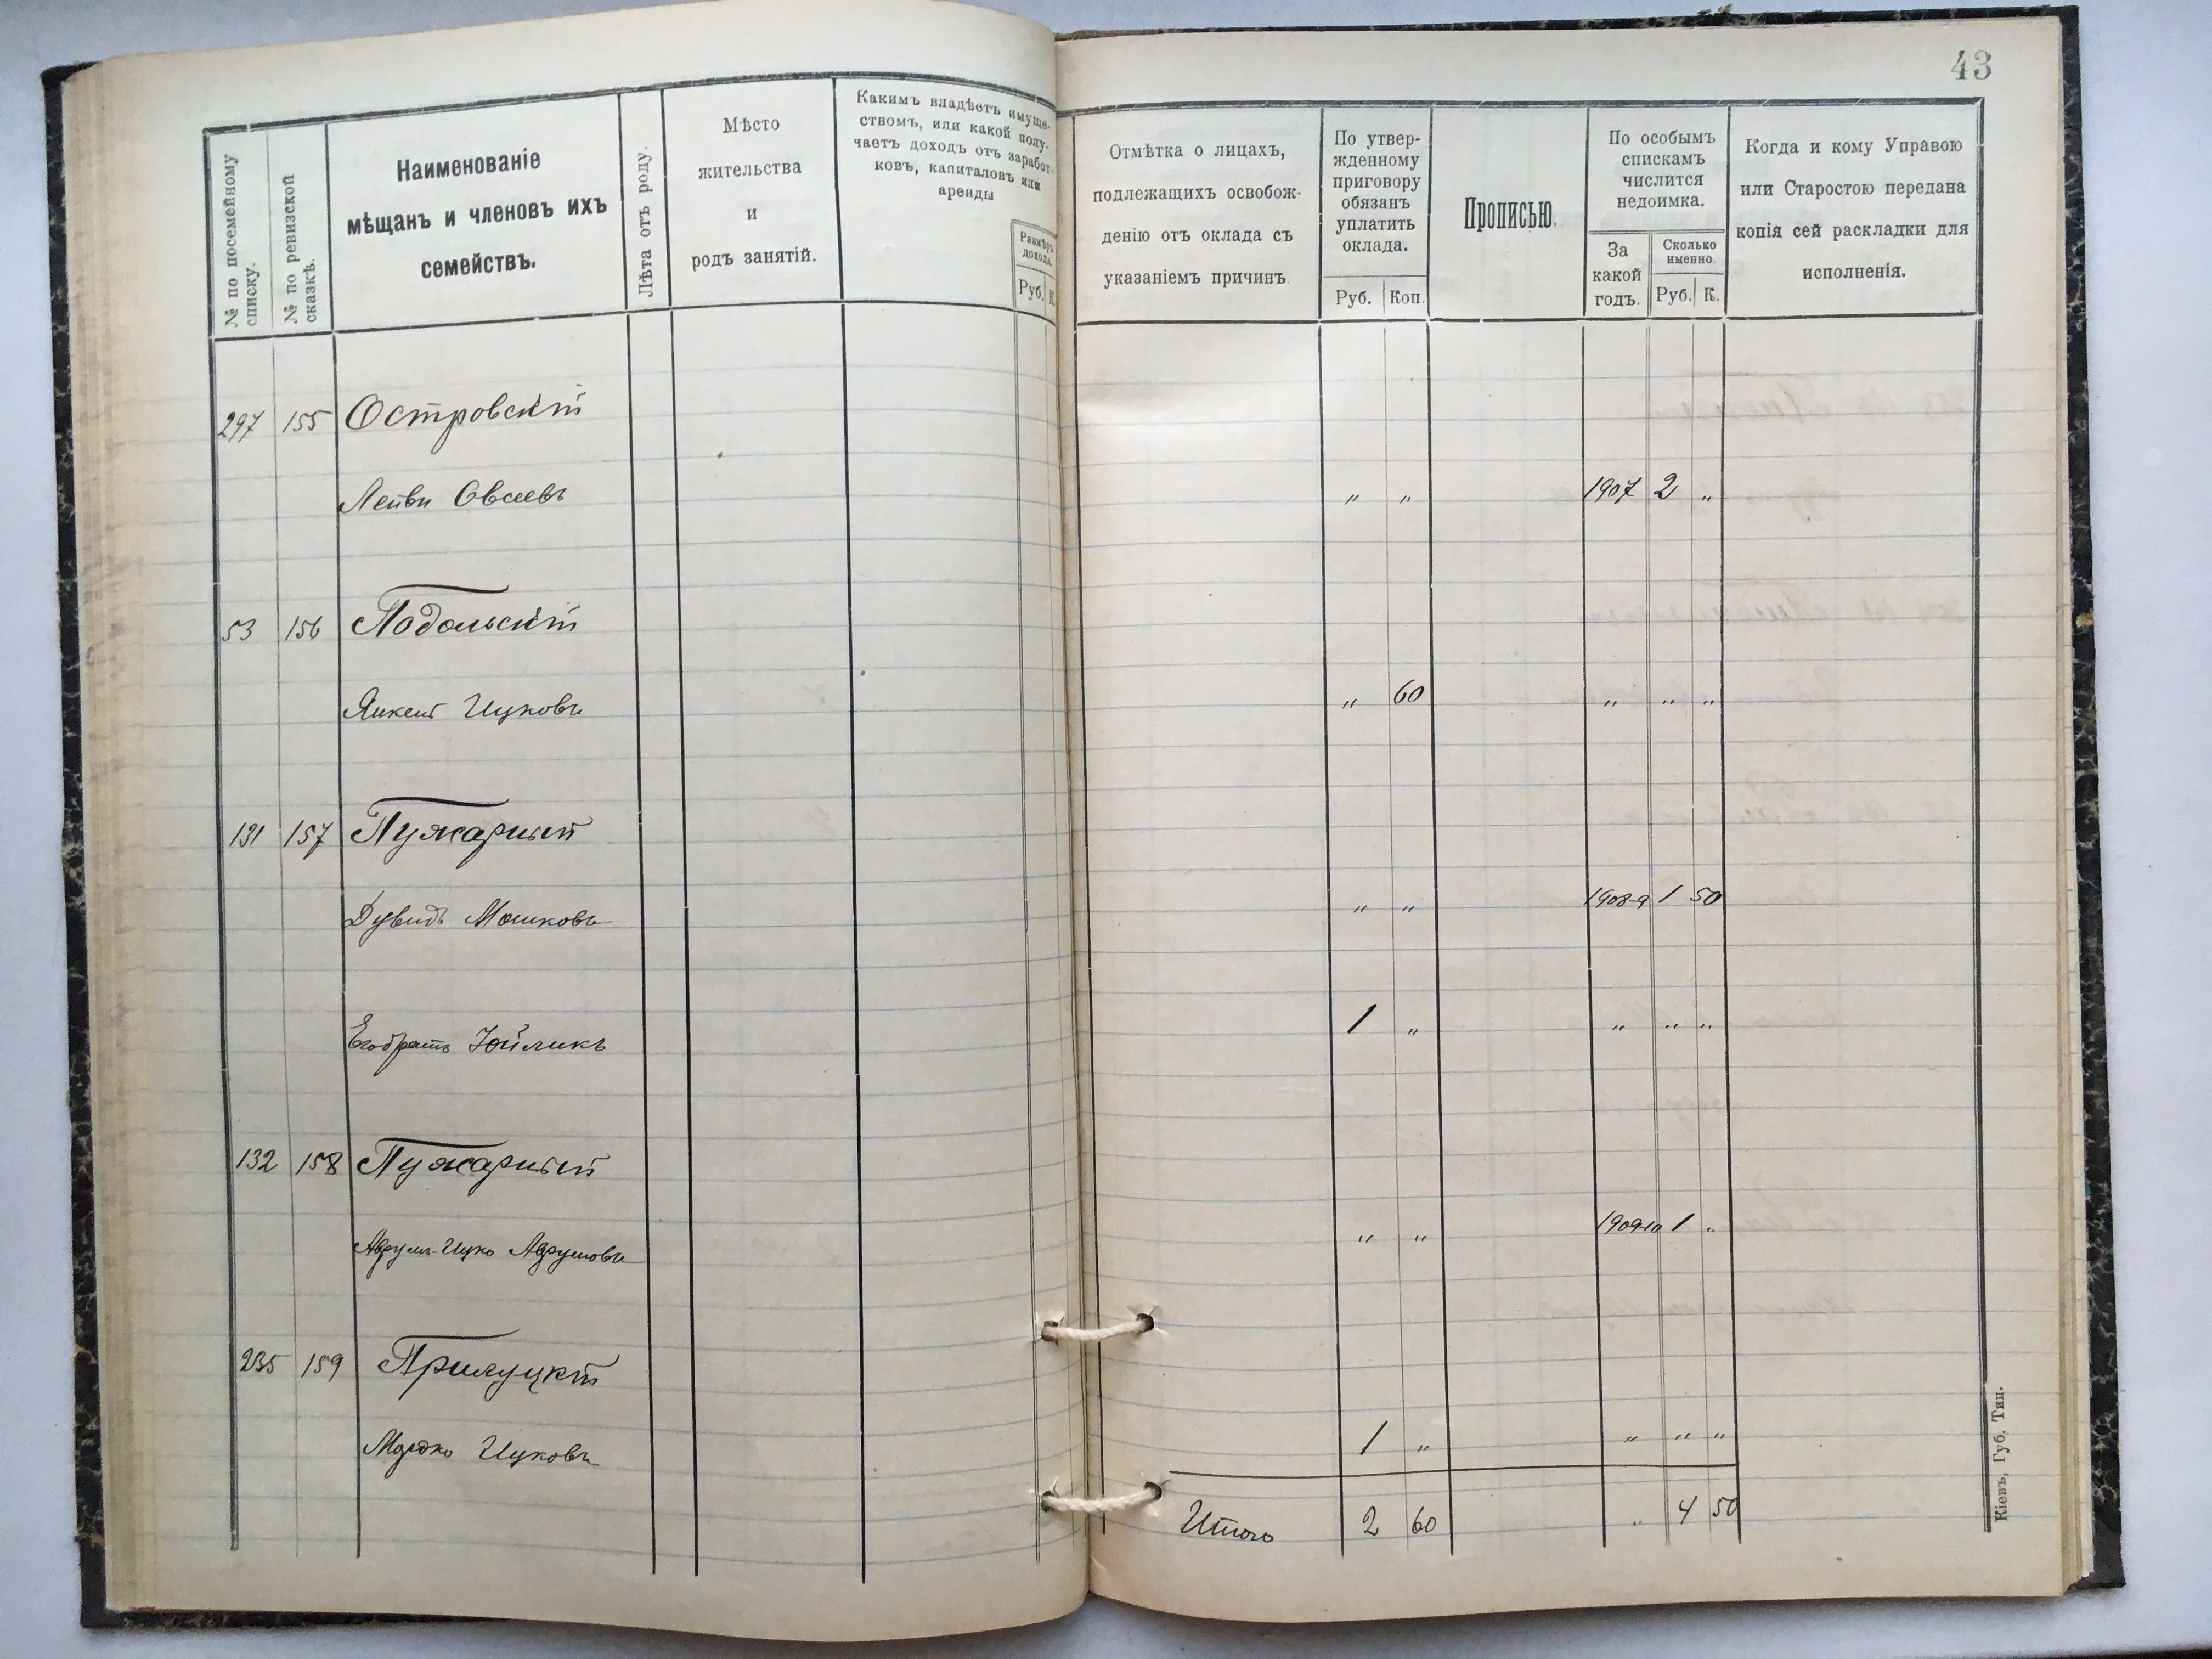 43
№ по посемейному
списку.
№ по ревизской
сказкѣ.
Наименованіе
мѣщанъ и членовъ ихъ
семействъ.
Лѣта отъ роду.
Мѣсто
жительства
и
родъ занятій.
Какимъ владѣетъ имуще-
ствомъ, или какой полу-
чаетъ доходъ отъ заработ-
ковъ, капиталовъ или
аренды
Размѣръ
дохода.
Руб. К.
Отмѣтка о лицахъ,
подлежащихъ освобож-
денію отъ оклада съ
указаніемъ причинъ.
По утвер-
жденному
приговору
обязанъ
уплатить
оклада.
Руб. Коп.
Прописью.
По особымъ
спискамъ
числится
недоимка.
За
какой
годъ.
Сколько
именно.
Руб. К.
Когда и кому Управою
или Старостою передана
копія сей раскладки для
исполненія.
297 155 Островскій
Лейви Овсеевъ „ „ 1907 2 „
53 156 Подольскій
Янкель Ицковъ „ 60 „ „ „
131 157 Пужарный
Дувидъ Мошковъ „ „ 1908-9 1 50
Его братъ Юйликъ 1 „ „ „ „
132 158 Пужарный
Аврумъ-Ицко Аврумовъ „ „ 1909-10 1 „
235 159 Прилуцкій
Мордко Ицковъ 1 „ „ „ „
Итого 2 60 „ 4 50
Кіевъ, Губ. Тип.